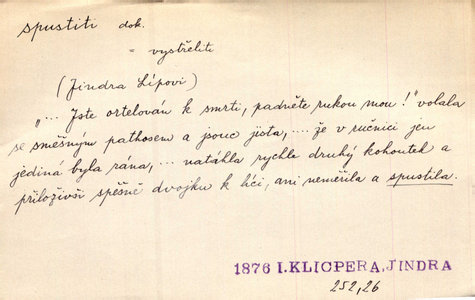 spustiti dok.
= vystřeliti
(Jindra Lípovi)
"... Jste ortelován k smrti, padněte rukou mou!" volala
se směšným pathosem a jsouc jista, ... že v ručnici jen
jediná byla rána, ... natáhla rychle druhý kohoutek a
přiloživši spěšně dvojku k líci, ani neměřila a spustila.
1876 I.KLICPERA, JINDRA
252,26